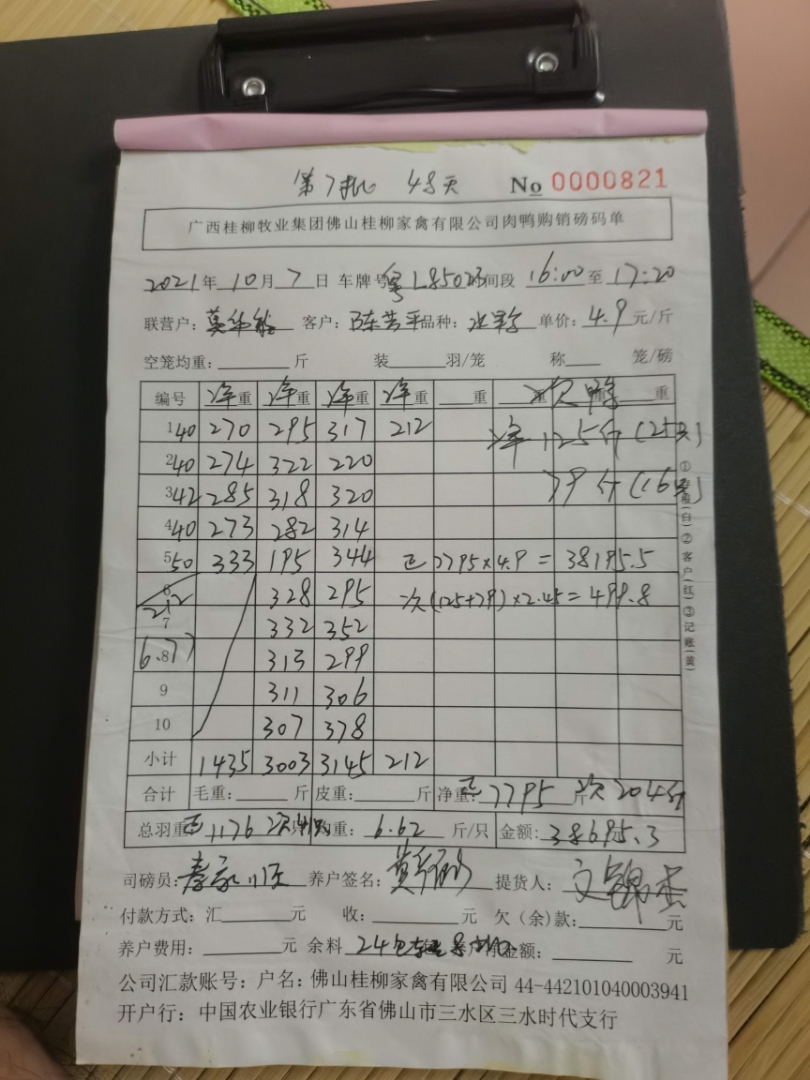 第7批 48天 No 0000821
广西桂柳牧业集团佛山桂柳家禽有限公司肉鸭购销磅码单
2021年10月7日 车牌号 粤L850 间段 16:00至17:20
联营户: 客户: 品种: 单价: 4.9 元/斤
空笼均重: 斤 装 羽/笼 称 笼/磅
编号 净重 净重 净重 净重 重 次鸭 重
1 40 270 295 317 212 净125斤(25只)
2 40 274 322 220
3 42 285 318 320 79斤(16只)
4 40 273 282 314
5 50 333 195 344 正 7795×4.9=38195.5
6 212 328 295 次(125+79)×2.45=499.8
7 332 352
8 6.77 313 299
9 311 306
10 307 378
小计 1435 3003 3145 212
合计 毛重: 斤 皮重: 斤 净重: 正7795斤 次204斤
总羽重 正1176 次41 均重: 6.62 斤/只 金额: 38695.3
司磅员: 养户签名: 提货人: 文锦杰
付款方式: 汇 元 收: 元 欠(余)款: 元
养户费用: 元 余料 24包 金额: 元
公司汇款账号: 户名: 佛山桂柳家禽有限公司 44-442101040003941
开户行: 中国农业银行广东省佛山市三水区三水时代支行
(白)②客户(红)③记账(黄)